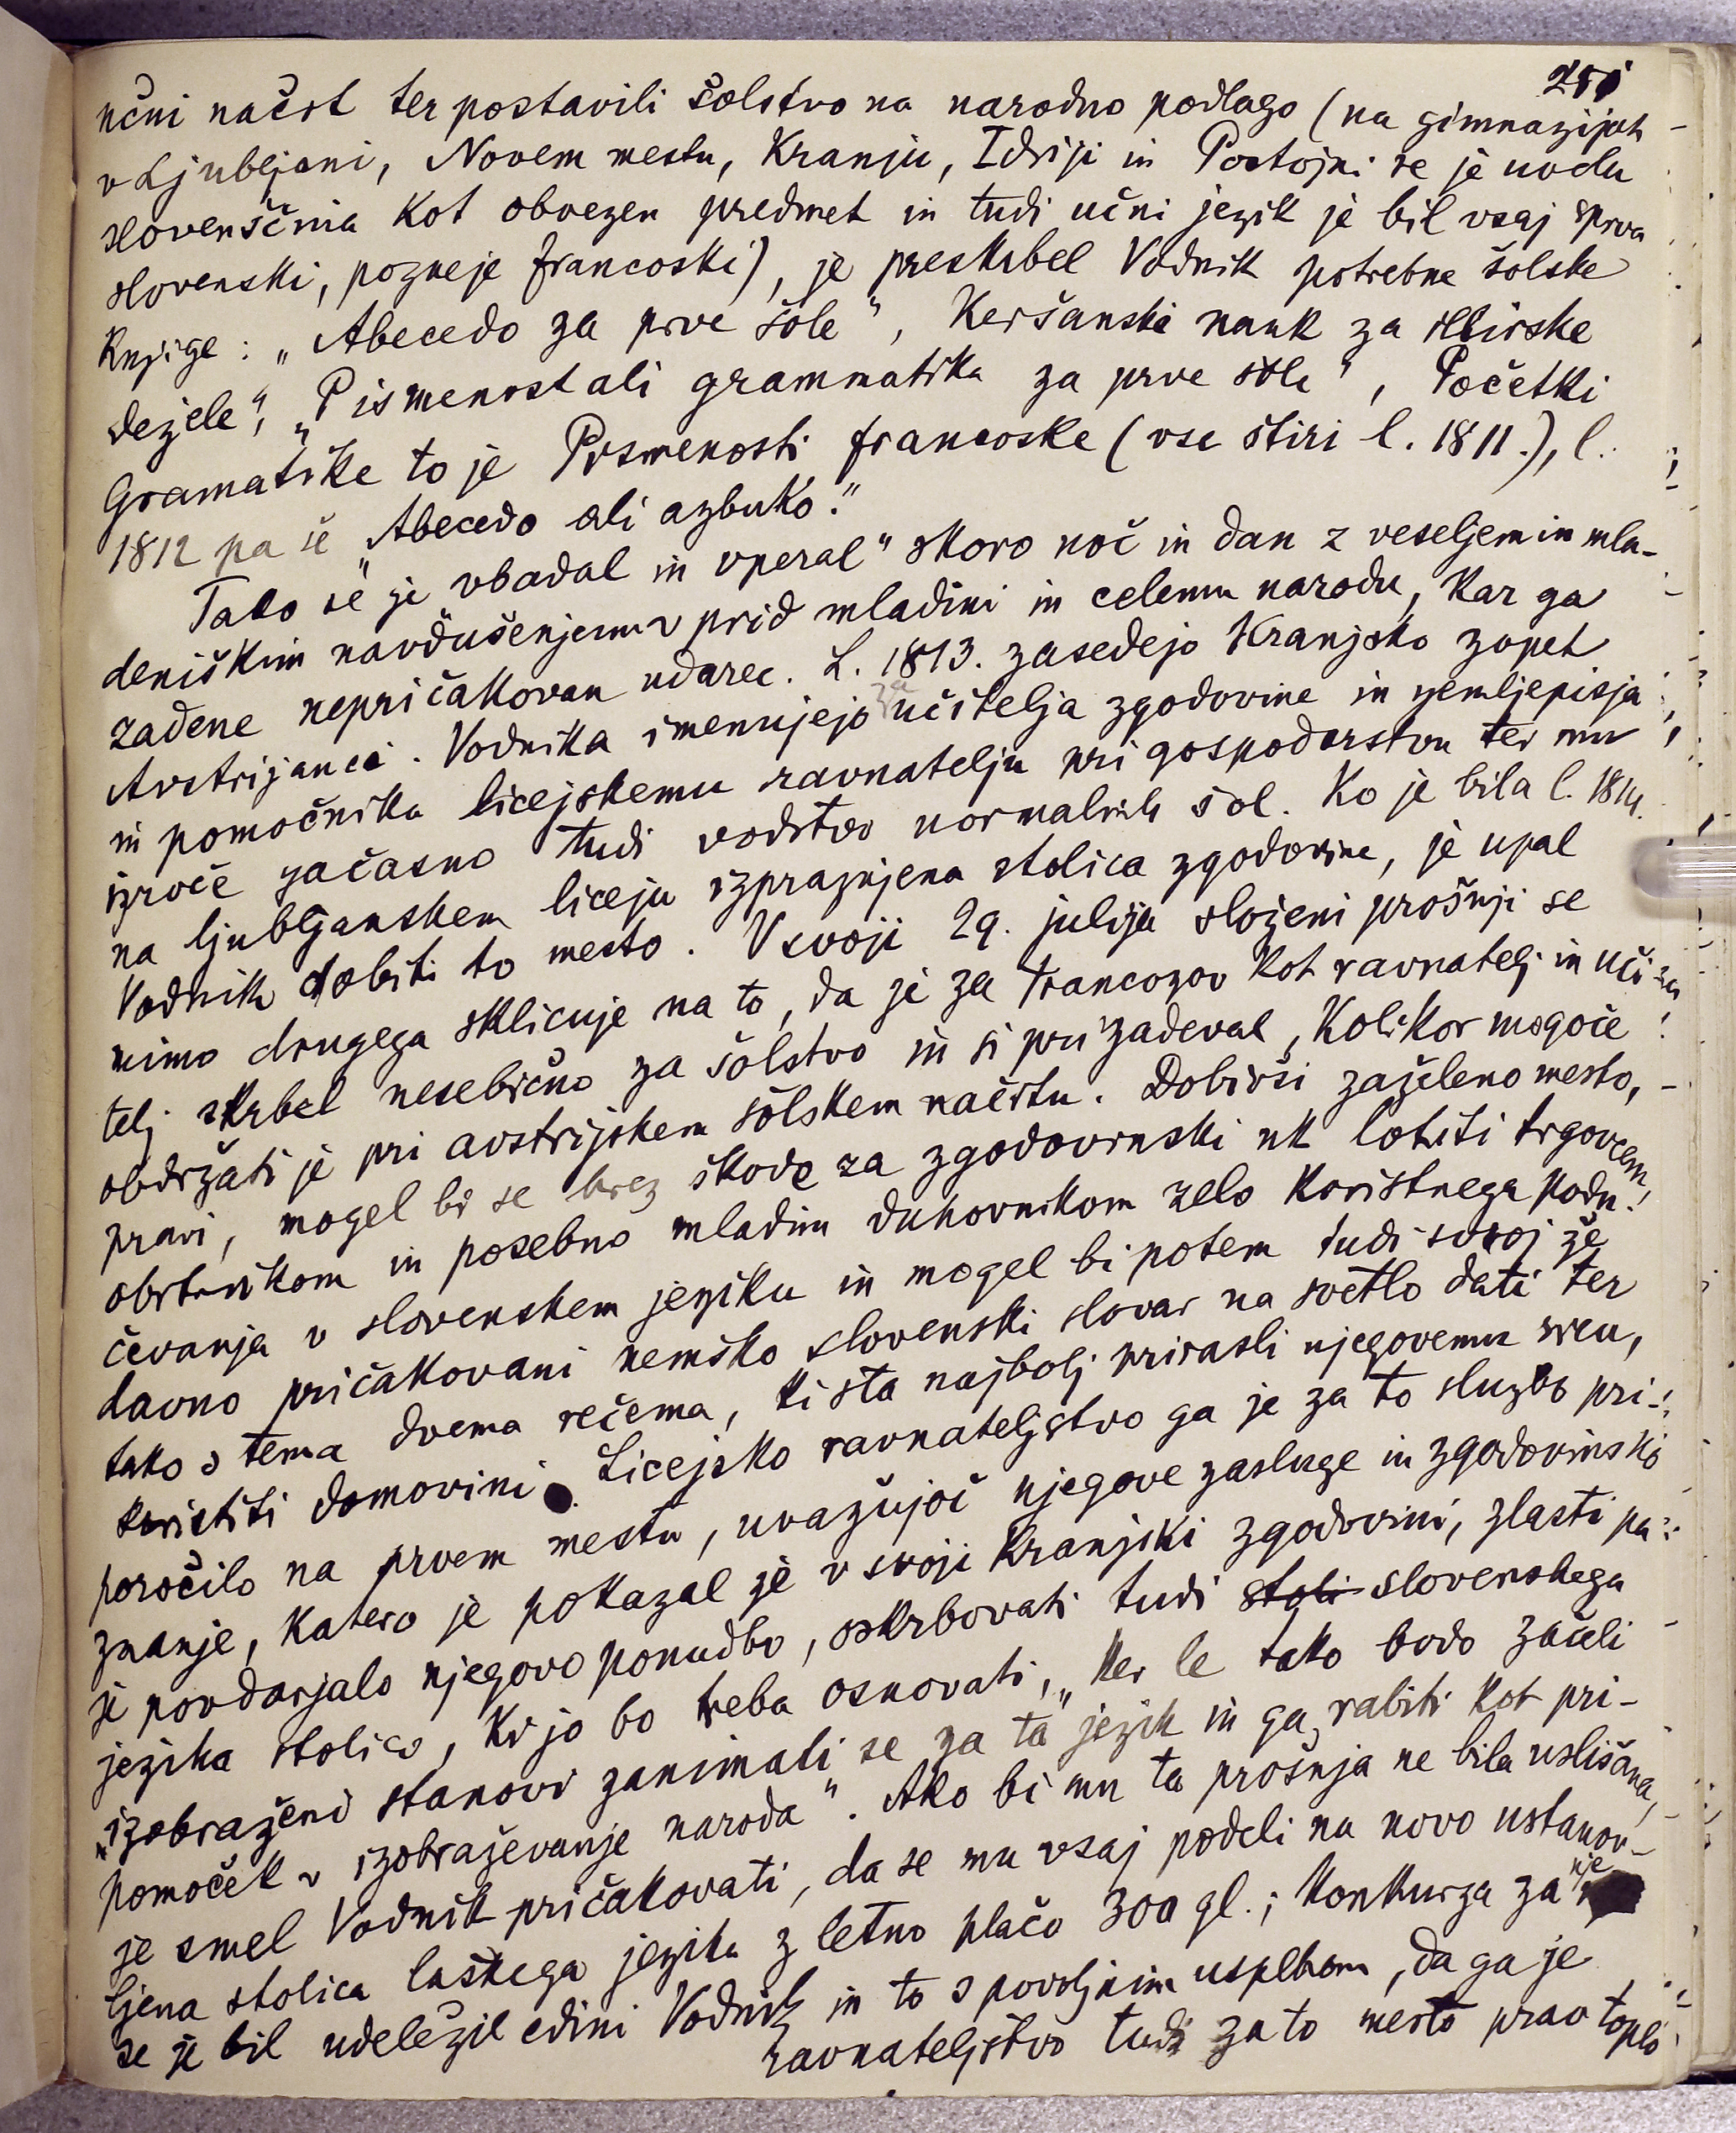 učni načrt ter postavili šolstvo na narodno podlago (na gimnazijah
v Ljubljani, Novem mestu, Kranju, Idriji in Postojni se je uvedla
slovenščina kot obvezen predmet in tudi učni jezik je bil vsaj sprva
slovenski, pozneje francoski), je preskrbel Vodnik potrebne šolske
knjige: „Abecedo za prve šole", Keršanski nauk za illirske
dežele", „Pismenost ali grammatika za prve šole", Početki
Gramatike to je Pismenosti francoske (vse štiri l. 1811.), l.
1812 pa še „Abecedo ali azbuko."
Tako se je „vbadal in vperal" skoro noč in dan z veseljem in mla-
deniškim navdušenjem v prid mladini in celemu narodu, kar ga
zadene nepričakovan udarec. L. 1813. zasedejo Kranjsko zopet
Avstrijanci. Vodnika imenujejo za učitelja zgodovine in zemljepisja
in pomočnika licejskemu ravnatelju pri gospodarstvu ter mu
izroče začasno tudi vodstvo normalnih šol. Ko je bila l. 1814.
na ljubljanskem liceju izpraznjena stolica zgodovine, je upal
Vodnik dobiti to mesto. V svoji 29. julija složeni prošnji se
mimo drugega sklicuje na to, da je za Francozov kot ravnatelj in uči-
telj skrbel nesebično za šolstvo in si prizadeval, kolikor mogoče
obdržati je pri avstrijskem šolskem načrtu. Dobivši zaželeno mesto,
pravi, mogel bi se brez škode za zgodovinski uk lotiti trgovcem,
obrtnikom in posebno mladim duhovnikom zelo koristnega podu-
čevanja v slovenskem jeziku in mogel bi potem tudi svoj že
davno pričakovani nemško slovenski slovar na svetlo dati ter
tako s tema dvema rečema, ki sta najbolj prirasli njegovemu srcu,
koristiti domovini. Licejsko ravnateljstvo ga je za to službo pri-
poročilo na prvem mestu, uvažujoč njegove zasluge in zgodovinsko
znanje, katero je pokazal že v svoji Kranjski zgodovini, zlasti pa
je povdarjalo njegovo ponudbo, oskrbovati tudi stoli slovenskega
jezika stolico, ki jo bo treba osnovati, „ker le tako bodo začeli
„izobraženi stanovi zanimati se za ta jezik in ga rabiti kot pri-
pomoček v izobraževanje naroda". Ako bi mu ta prošnja ne bila uslišana,
je smel Vodnik pričakovati, da se mu vsaj podeli na novo ustanov-
ljena stolica laškega jezika z letno plačo 300 gl.; konkurza za nje
se je bil udeležil edini Vodnik in to s povoljnim uspehom, da ga je
ravnateljstvo tudi za to mesto prav toplo